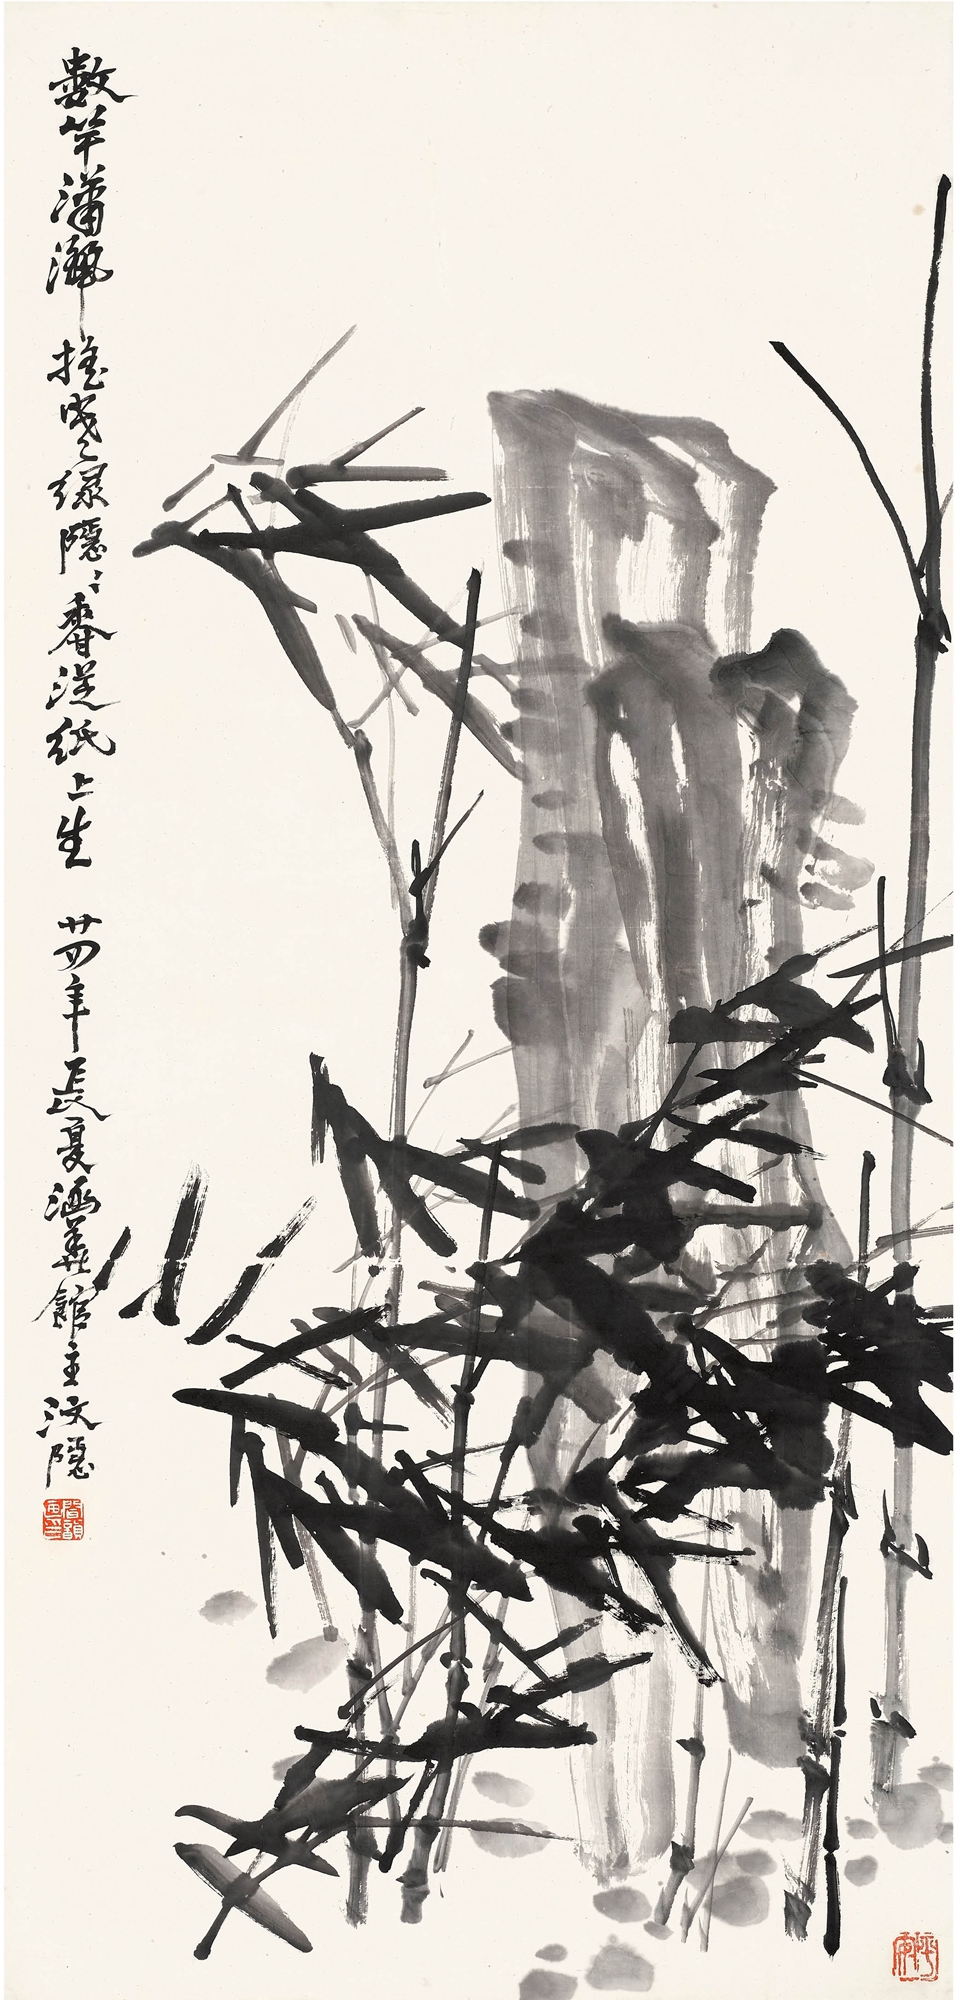 數竿瀟灑搖寒綠隱〻香從紙上生 廿四年長夏涵館主汶隱